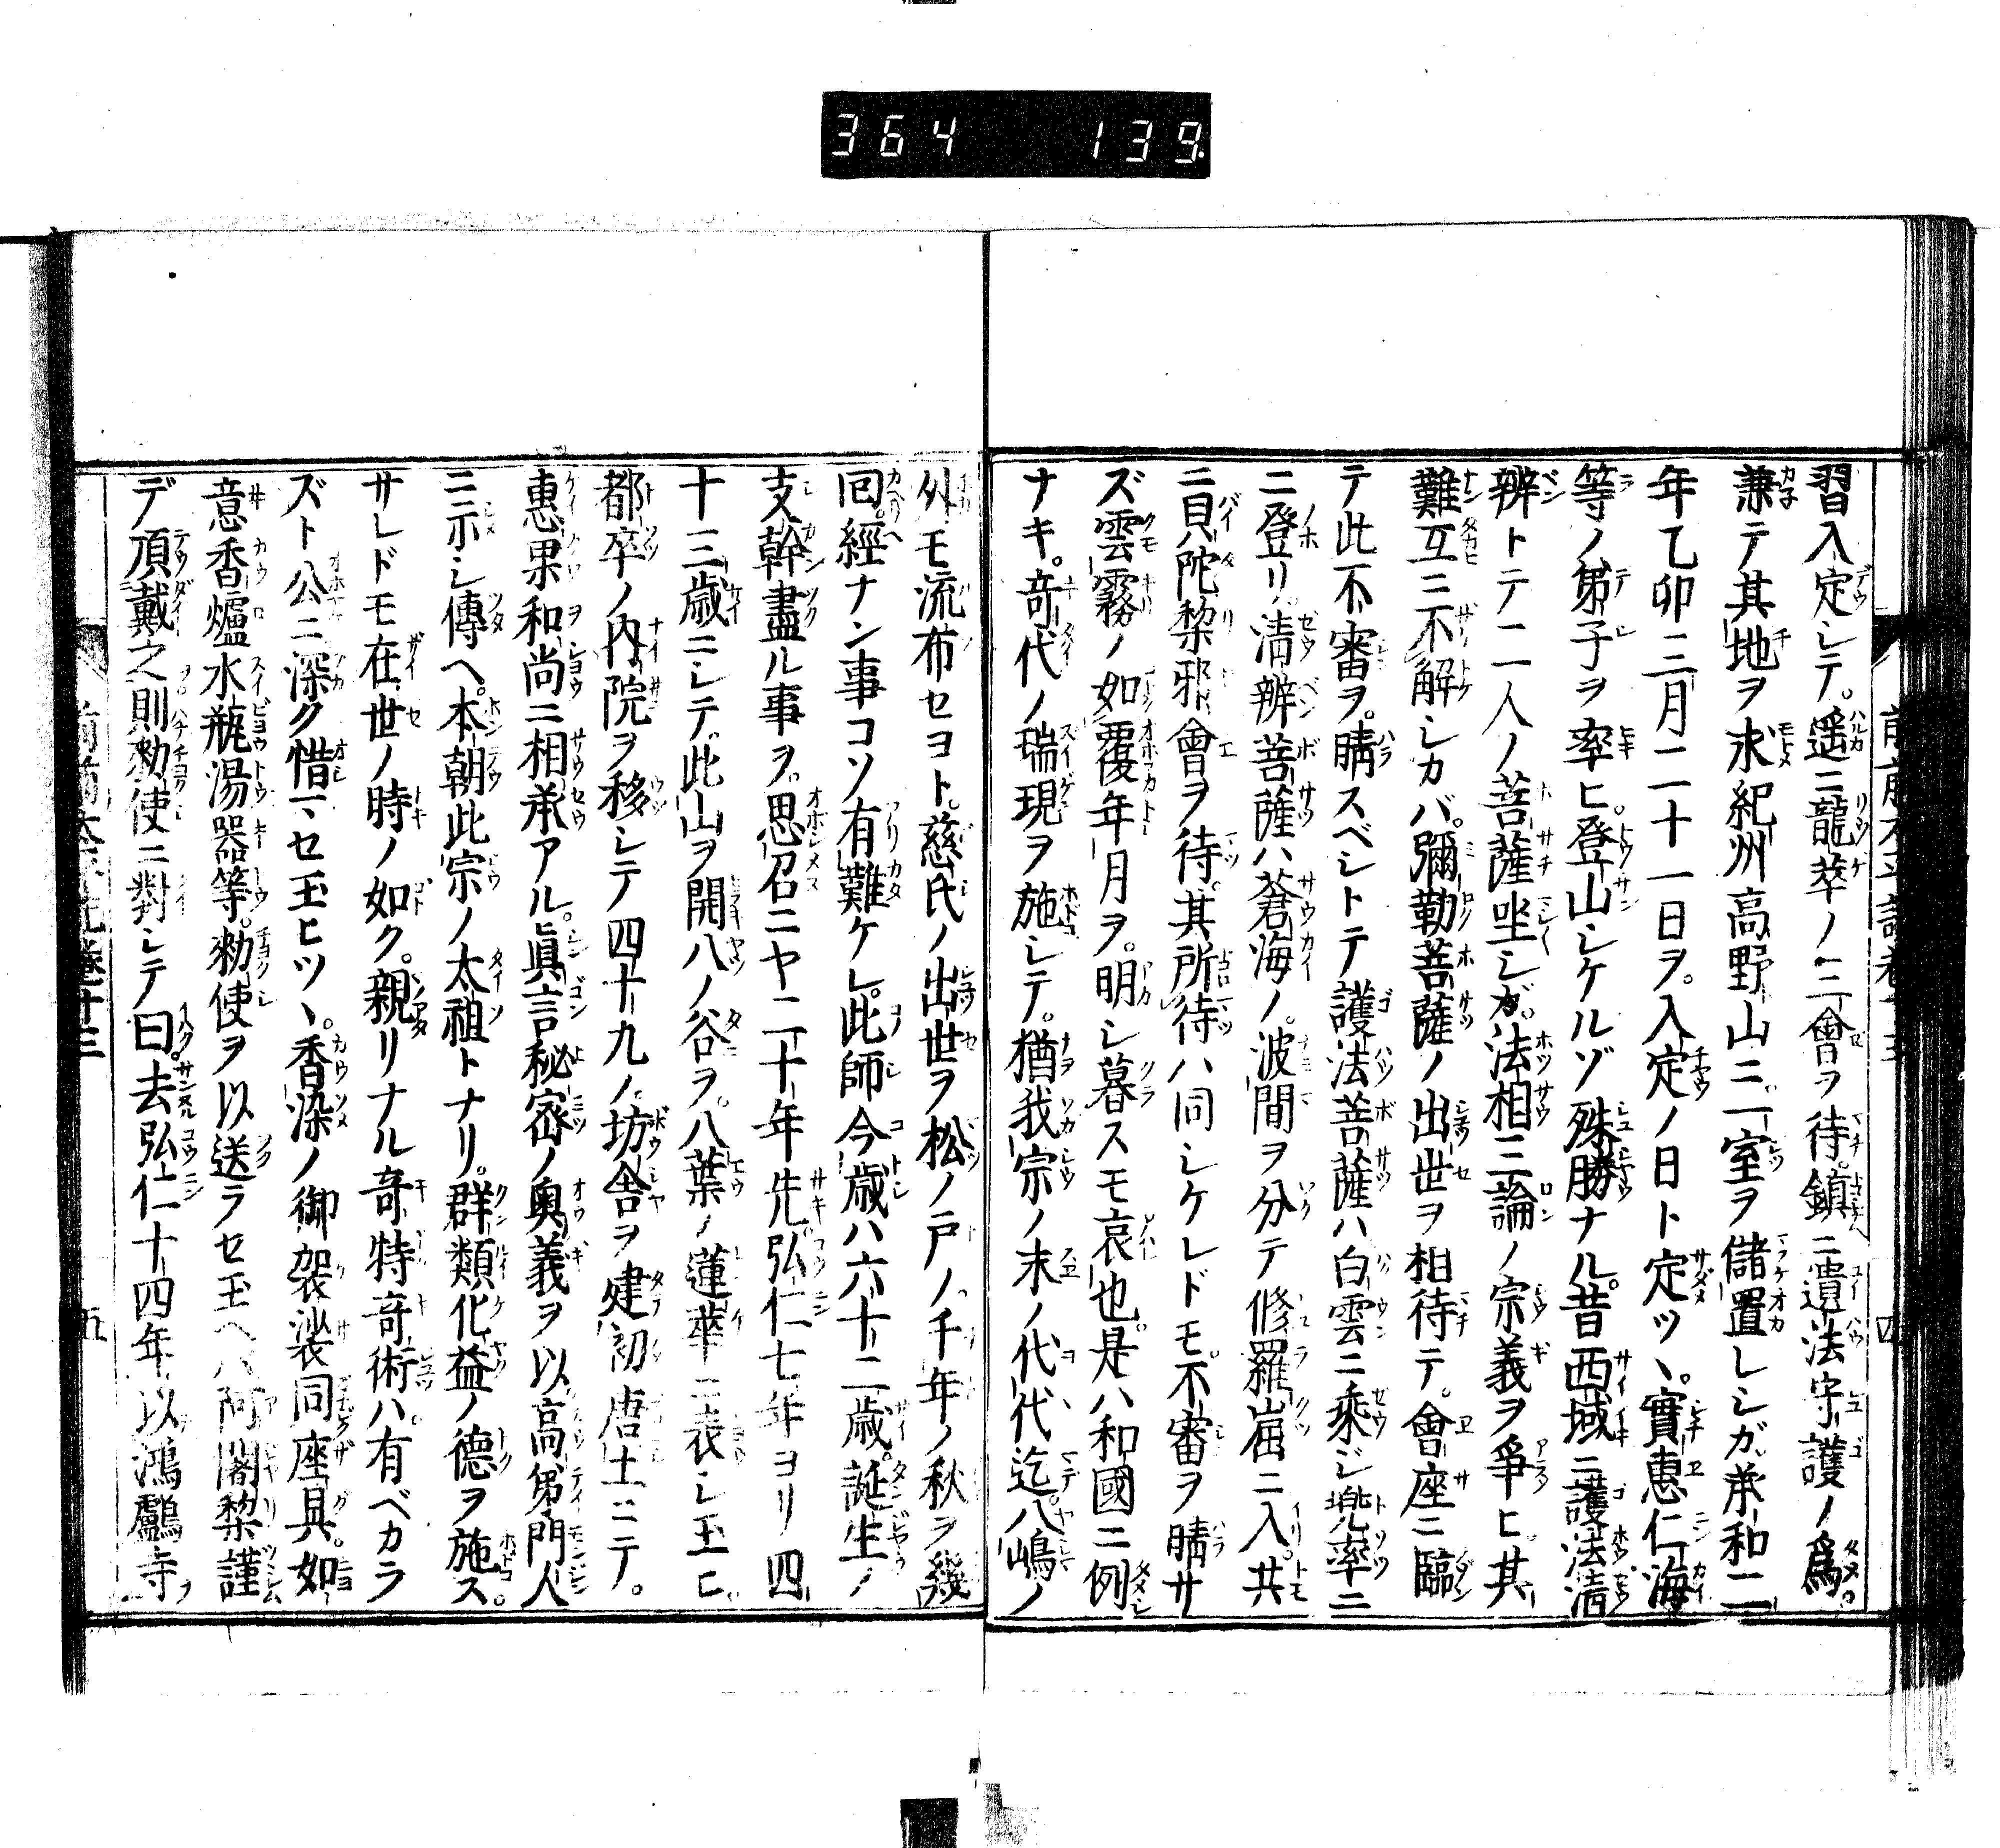 364 139
習入定シテ。遥ニ龍華ノ三會ヲ待。鎮ニ遺法守護ノ爲。
兼テ其地ヲ求紀州高野山ニ一室ヲ儲置レシガ。承和二
年乙卯三月二十一日ヲ。入定ノ日ト定ツヽ。實惠仁海
等ノ弟子ヲ率ヒ。登山シケルゾ殊勝ナル。昔西域ニ護法清
辨トテ二人ノ菩薩坐シガ。法相三論ノ宗義ヲ爭ヒ。其
難互ニ不解シカバ。彌勒菩薩ノ出世ヲ相待テ。會座ニ臨
テ此不審ヲ。晴スベシトテ護法菩薩ハ白雲ニ乘ジ兜率ニ
ニ登リ。清辨菩薩ハ蒼海ノ。波間ヲ分テ修羅崫ニ入。共
ニ貝陀黎邪會ヲ待。其所待ハ同シケレドモ。不審ヲ晴サ
ズ雲霧ノ如覆年月ヲ。明シ暮スモ哀也。是ハ和國ニ例
ナキ。奇代ノ瑞現ヲ施シテ。猶我宗ノ末ノ代代迄。八嶋ノ
外モ流布セヨト。慈氏ノ出世ヲ松ノ戸ノ千年ノ秋ヲ幾
回。經ナン事コソ有難ケレ。此師今歳ハ六十二歳。誕生ノ
支幹盡ル事ヲ。思召ニヤ二十年先弘仁七年ヨリ四
十三歳ニシテ此山ヲ開八ノ谷ヲ。八葉ノ蓮華ニ表シ玉ヒ
都卒ノ内院ヲ移シテ四十九ノ。坊舎ヲ建初唐土ニテ。
惠果和尚ニ相承アル。眞言秘密ノ奥義ヲ以高弟門人
ニ示シ傳ヘ。本朝此宗ノ太祖トナリ。群類化益ノ德ヲ施ス。
サレドモ在世ノ時ノ如ク。親リナル奇特奇術ハ。有ベカラ
ズト公ニ深ク惜マセ玉ヒツヽ。香染ノ御袈裟同座具。如
意香爐水瓶湯器等。勅使ヲ以送ラセ玉ヘバ阿闍黎謹
デ頂戴之則勅使ニ對シテ曰。去弘仁十四年以鴻臚寺